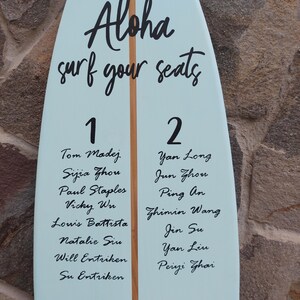 Aloha
surf your seats
1
Tom Madej
Sijia Zhou
Paul Staples
Vicky Wu
Louis Battista
Natalie Sru
Will Entriken
Su Entriken
2
Yan Long
Jun Zhou
Ping An
Zhimin Wang
Jin Su
Yan Liu
Peiyi Zhai